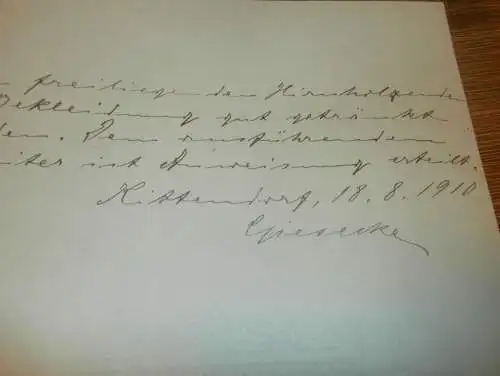 freiliegenden Hirnholzenden
Bekleidung gut getränkt
den. Dem ausführenden
eiter ist Anweisung erteilt.
Kittendorf, 18.8.1910
Giesecke